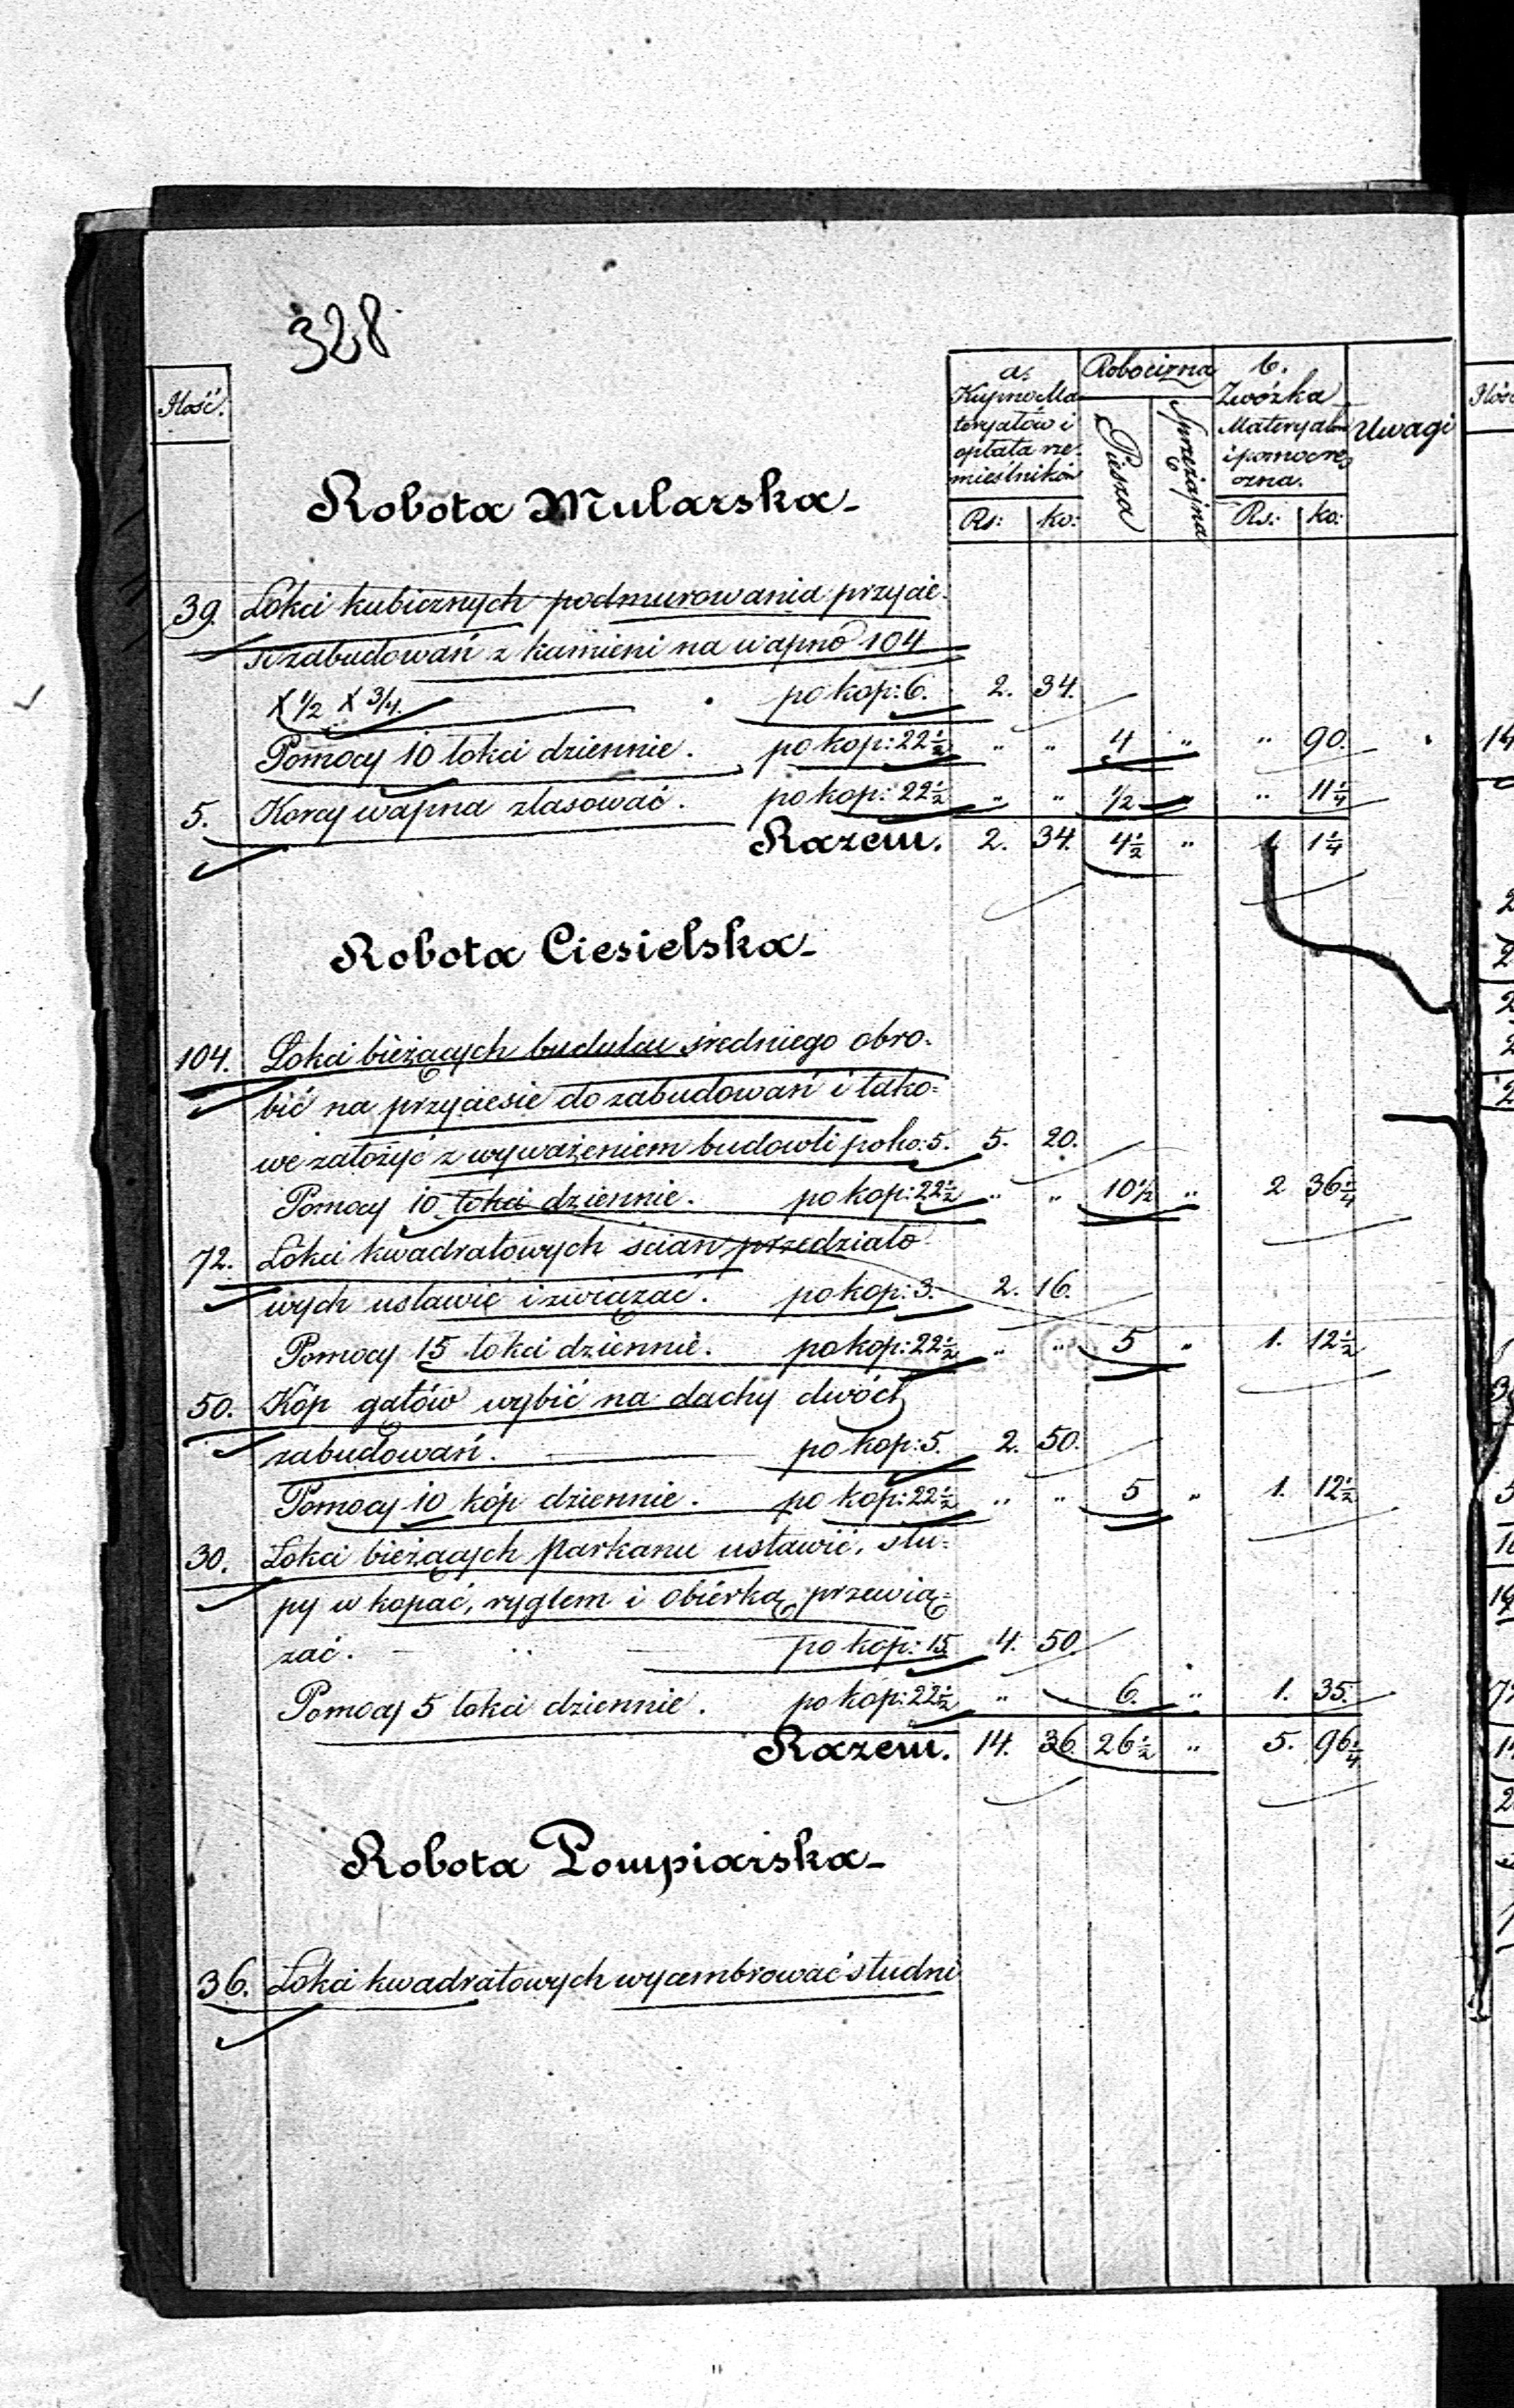 328
Ilość.
a.
Kupno Ma-
teryałów i
opłata rze-
mieślników
Rs: ko:
Robocizna
Piesza
Sprzężajna
b.
Zwózka
Materyałów
i pomocni-
czna.
Rs: ko:
Uwagi
Robota Mularska
39. Łokci kubicznych podmurowania przycie-
si zabudowań z kamieni na wapno 104
x 1/2 x 3/4. po kop: 6. 2. 34.
Pomocy 10 łokci dziennie. po kop: 22 1/2 " " 4 " " 90.
5. Korcy wapna zlasować. po kop: 22 1/2 " " 1/2 " " 11 1/4
Razem. 2. 34. 4 1/2 " 1 1 1/4
Robota Ciesielska
104. Łokci bieżących budulcu średniego obro-
bić na przyciesie do zabudowań i tako-
we założyć z wyważeniem budowli po ko: 5. 5. 20.
Pomocy 10 łokci dziennie. po kop: 22 1/2 " " 10 1/2 " 2 36 1/4
72. Łokci kwadratowych ścian przedziało-
wych ustawić i związać. po kop: 3. 2. 16.
Pomocy 15 łokci dziennie. po kop: 22 1/2 " " 5 " 1. 12 1/2
50. Kóp gątów wybić na dachy dwóch
zabudowań. po kop: 5. 2. 50.
Pomocy 10 kóp dziennie. po kop: 22 1/2 " " 5 " 1. 12 1/2
30. Łokci bieżących parkanu ustawić, słu-
py wkopać, ryglem i obiérką przewią-
zać. po kop: 15 4. 50
Pomocy 5 łokci dziennie. po kop: 22 1/2 " 6. " 1. 35.
Razem. 14. 36. 26 1/2 " 5. 96 1/4
Robota Pompiarska
36. Łokci kwadratowych wycembrować studni